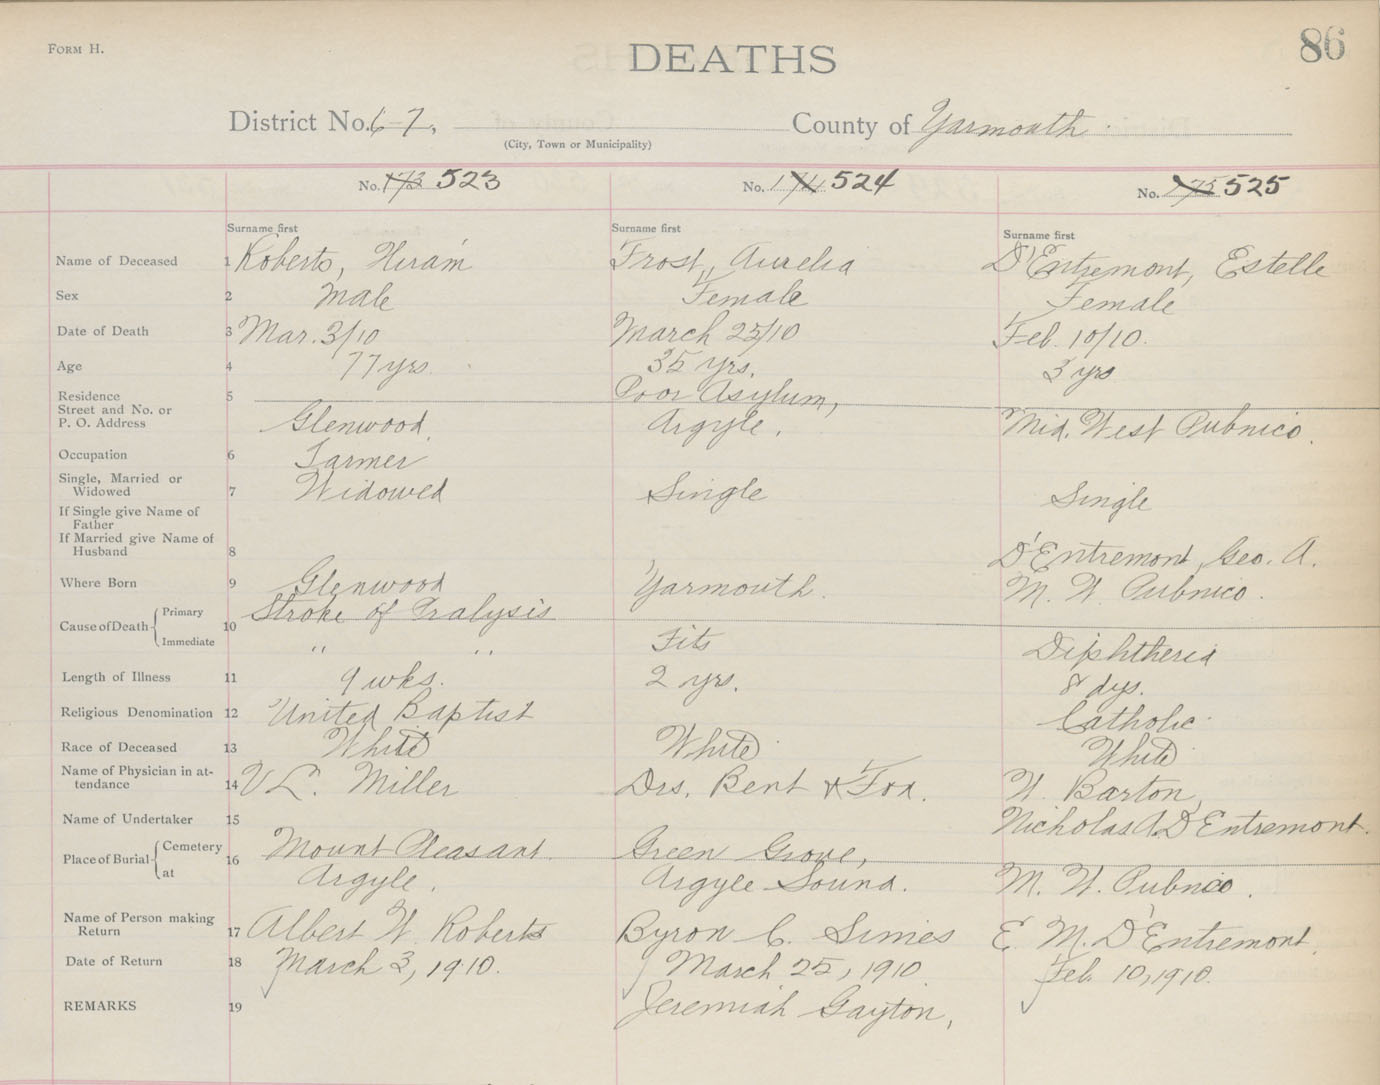 FORM H.
DEATHS
86
District No. 6-7, County of Yarmouth.
(City, Town or Municipality)
No. 173 523 No. 174 524 No. 175 525
Surname first Surname first Surname first
Name of Deceased 1 Roberts, Hiram Frost, Aurelia D'Entremont, Estelle
Sex 2 Male Female Female
Date of Death 3 Mar. 3/10 March 25/10 Feb. 10/10.
Age 4 77 yrs. 35 yrs. 3 yrs
Residence 5 Poor Asylum,
Street and No. or
P. O. Address Glenwood. Argyle. Mid. West Pubnico.
Occupation 6 Farmer
Single, Married or
Widowed 7 Widowed Single Single
If Single give Name of
Father
If Married give Name of
Husband 8 D'Entremont, Geo. A.
Where Born 9 Glenwood Yarmouth. M. W. Pubnico.
Cause of Death Primary 10 Stroke of Pralysis
Immediate " " Fits Diphtheria
Length of Illness 11 9 wks. 2 yrs. 8 dys.
Religious Denomination 12 United Baptist Catholic
Race of Deceased 13 White White White
Name of Physician in at-
tendance 14 V L. Miller Drs. Bent & Fox. W. Barton,
Name of Undertaker 15 Nicholas A. D'Entremont.
Place of Burial Cemetery 16 Mount Pleasant Green Grove,
at Argyle. Argyle Sound. M. W. Pubnico.
Name of Person making
Return 17 Albert W. Roberts Byron C. Simes E. M. D'Entremont
Date of Return 18 March 3, 1910. March 25, 1910 Feb. 10, 1910.
REMARKS 19 Jeremiah Gayton,